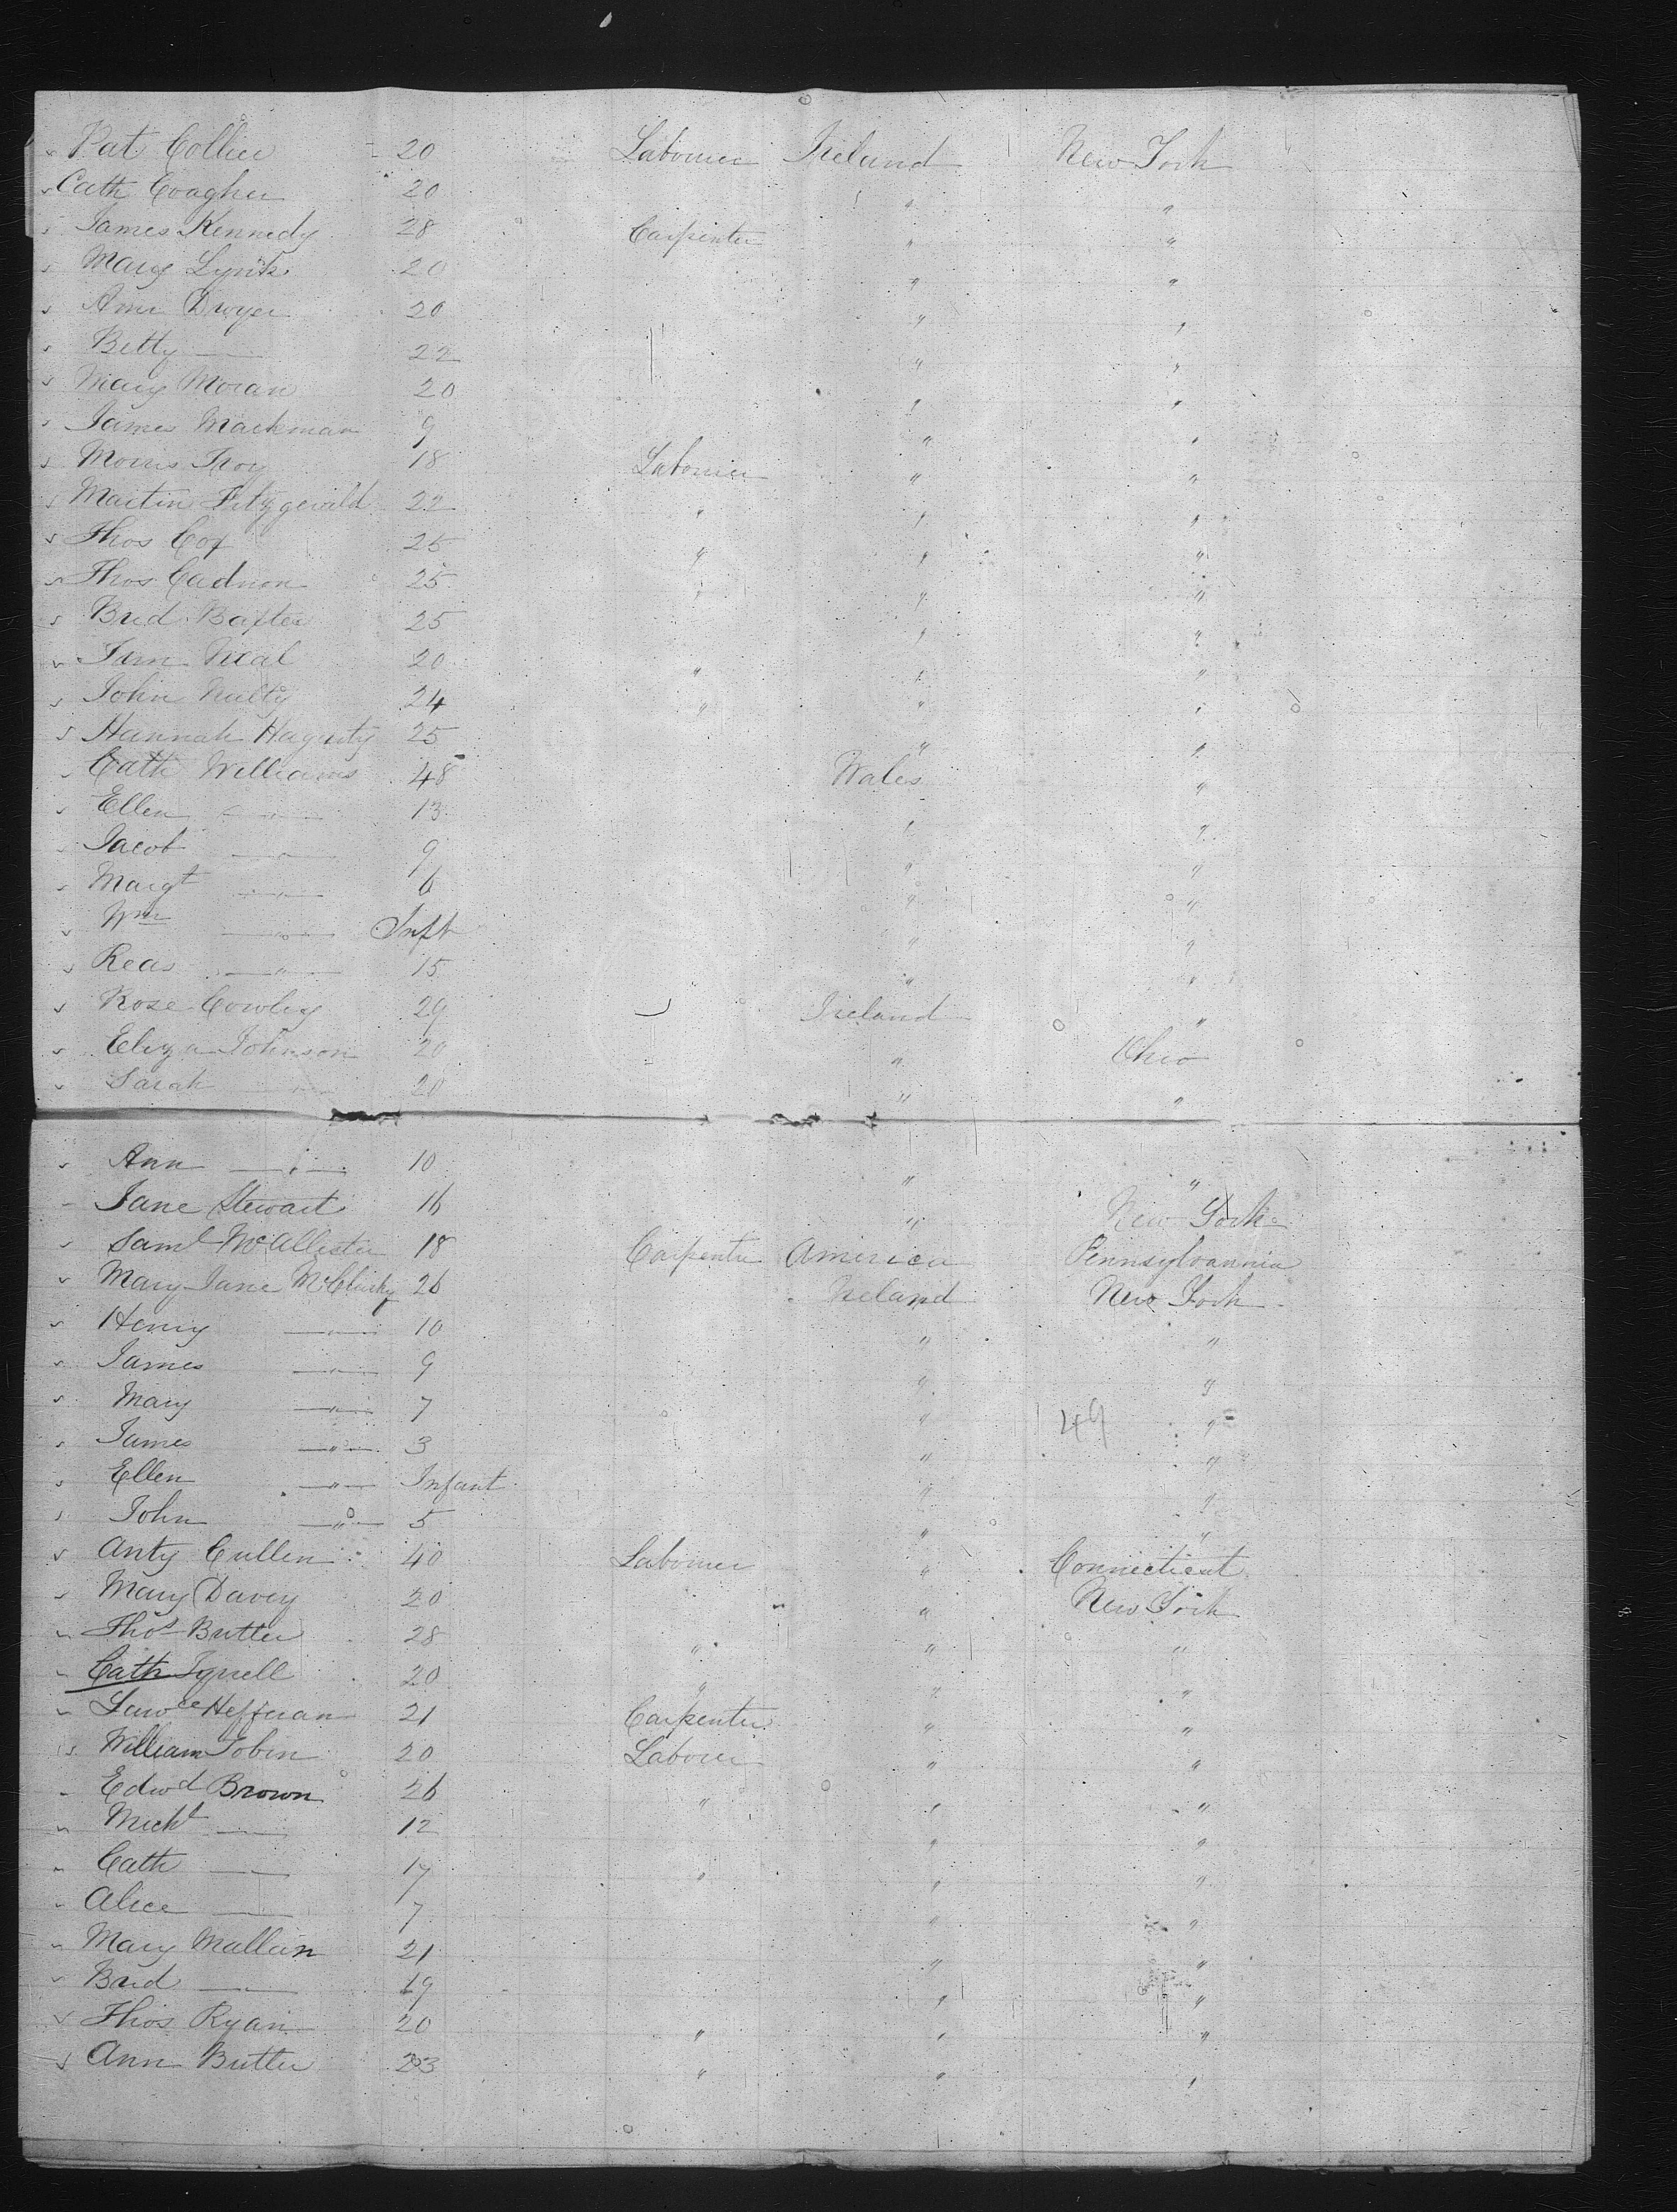 Pat Collier 20 Labourer Ireland New York
Cath 20 " "
James Kennedy 28 Carpenter " "
Mary Lynch 20 " "
Ann Dwyer 20 " "
Betty — 22 " "
Mary Moran 20 " "
James Mackman 9 " "
Morris Troy 18 Labourer " "
Martin Fitzgerald 22 " " "
Thos Cox 25 " " "
Thos Cadnon 25 " " "
Brid Baxter 25 " "
Jam Neal 20 " " "
John Nulty 24 " " "
Hannah Hagerty 25 " "
Cath Williams 48 Wales "
Ellen — " — 13 " "
Jacob — " — 9 " "
Margt — " — 6 " "
Wm — " — Inft " "
Reas — " — 15 " "
Rose Cowley 29 Ireland "
Eliza Johnson 20 " Ohio
Sarah — " — 20 " "
Ann — " — 10 " "
Jane Stewart 16 " New York
Saml McAllister 18 Carpenter America Pennsylvannia
Mary Jane McClusky 26 Ireland New York
Henry — " — 10 " "
James — " — 9 " "
Mary — " — 7 " 149 "
James — " — 3 " "
Ellen — " — Infant " "
John — " — 5 " "
Anty Cullen 40 Labourer " Connecticut
Mary Davey 20 " New York
Thos Butler 28 " " "
Cath Tyrell 20 " " "
Lawce Heffernan 21 Carpenter " "
William Tobin 20 Labourer " "
Edwd Brown 26 " " "
Michl — 12 " "
Cath — 17 " " "
Alice — 7 " "
Mary Mallan 21 " "
Brid — 19 " "
Thos Ryan 20 " " "
Ann Butler 23 " " "